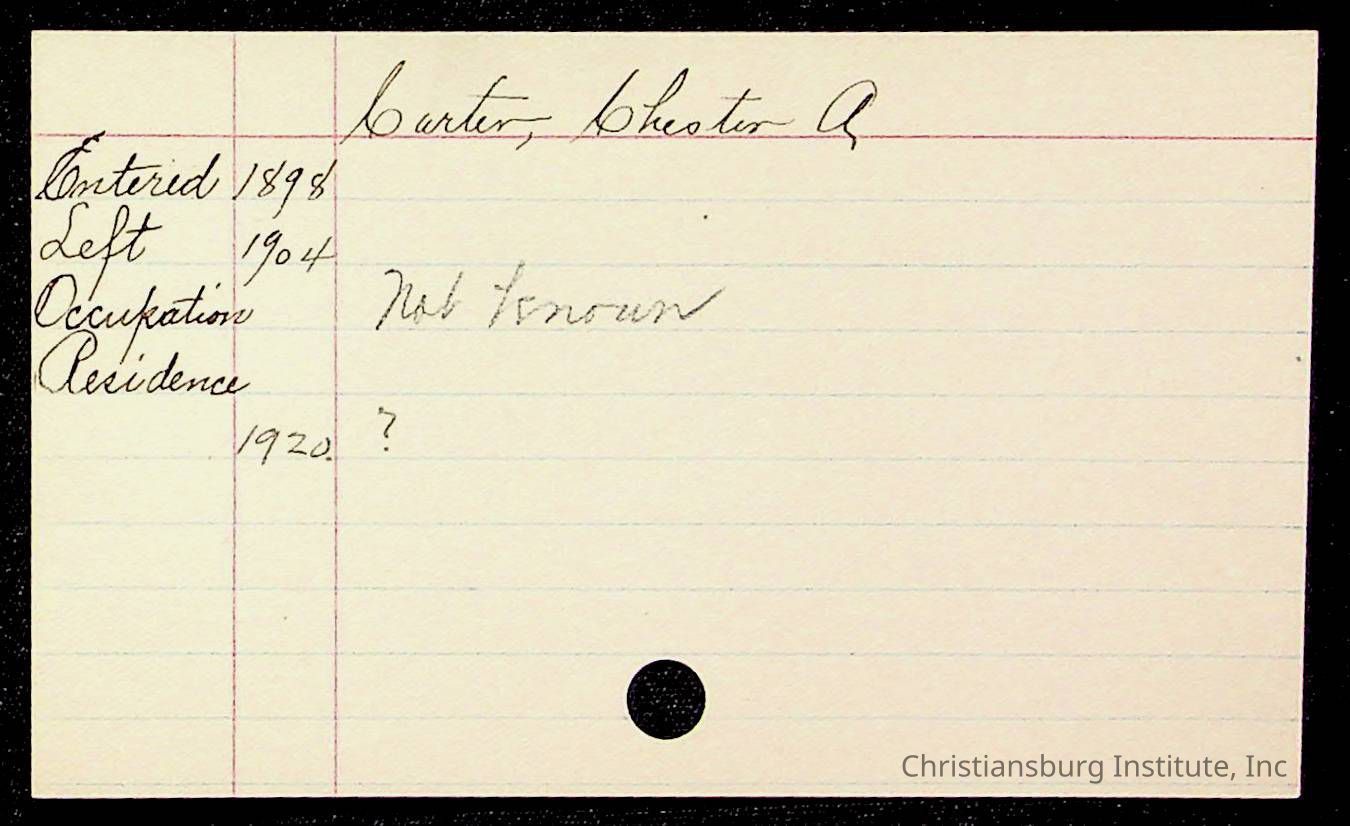 Carter, Chester A
Entered 1898
Left 1904
Occupation Not known
Residence
1920. ?
Christiansburg Institute, Inc